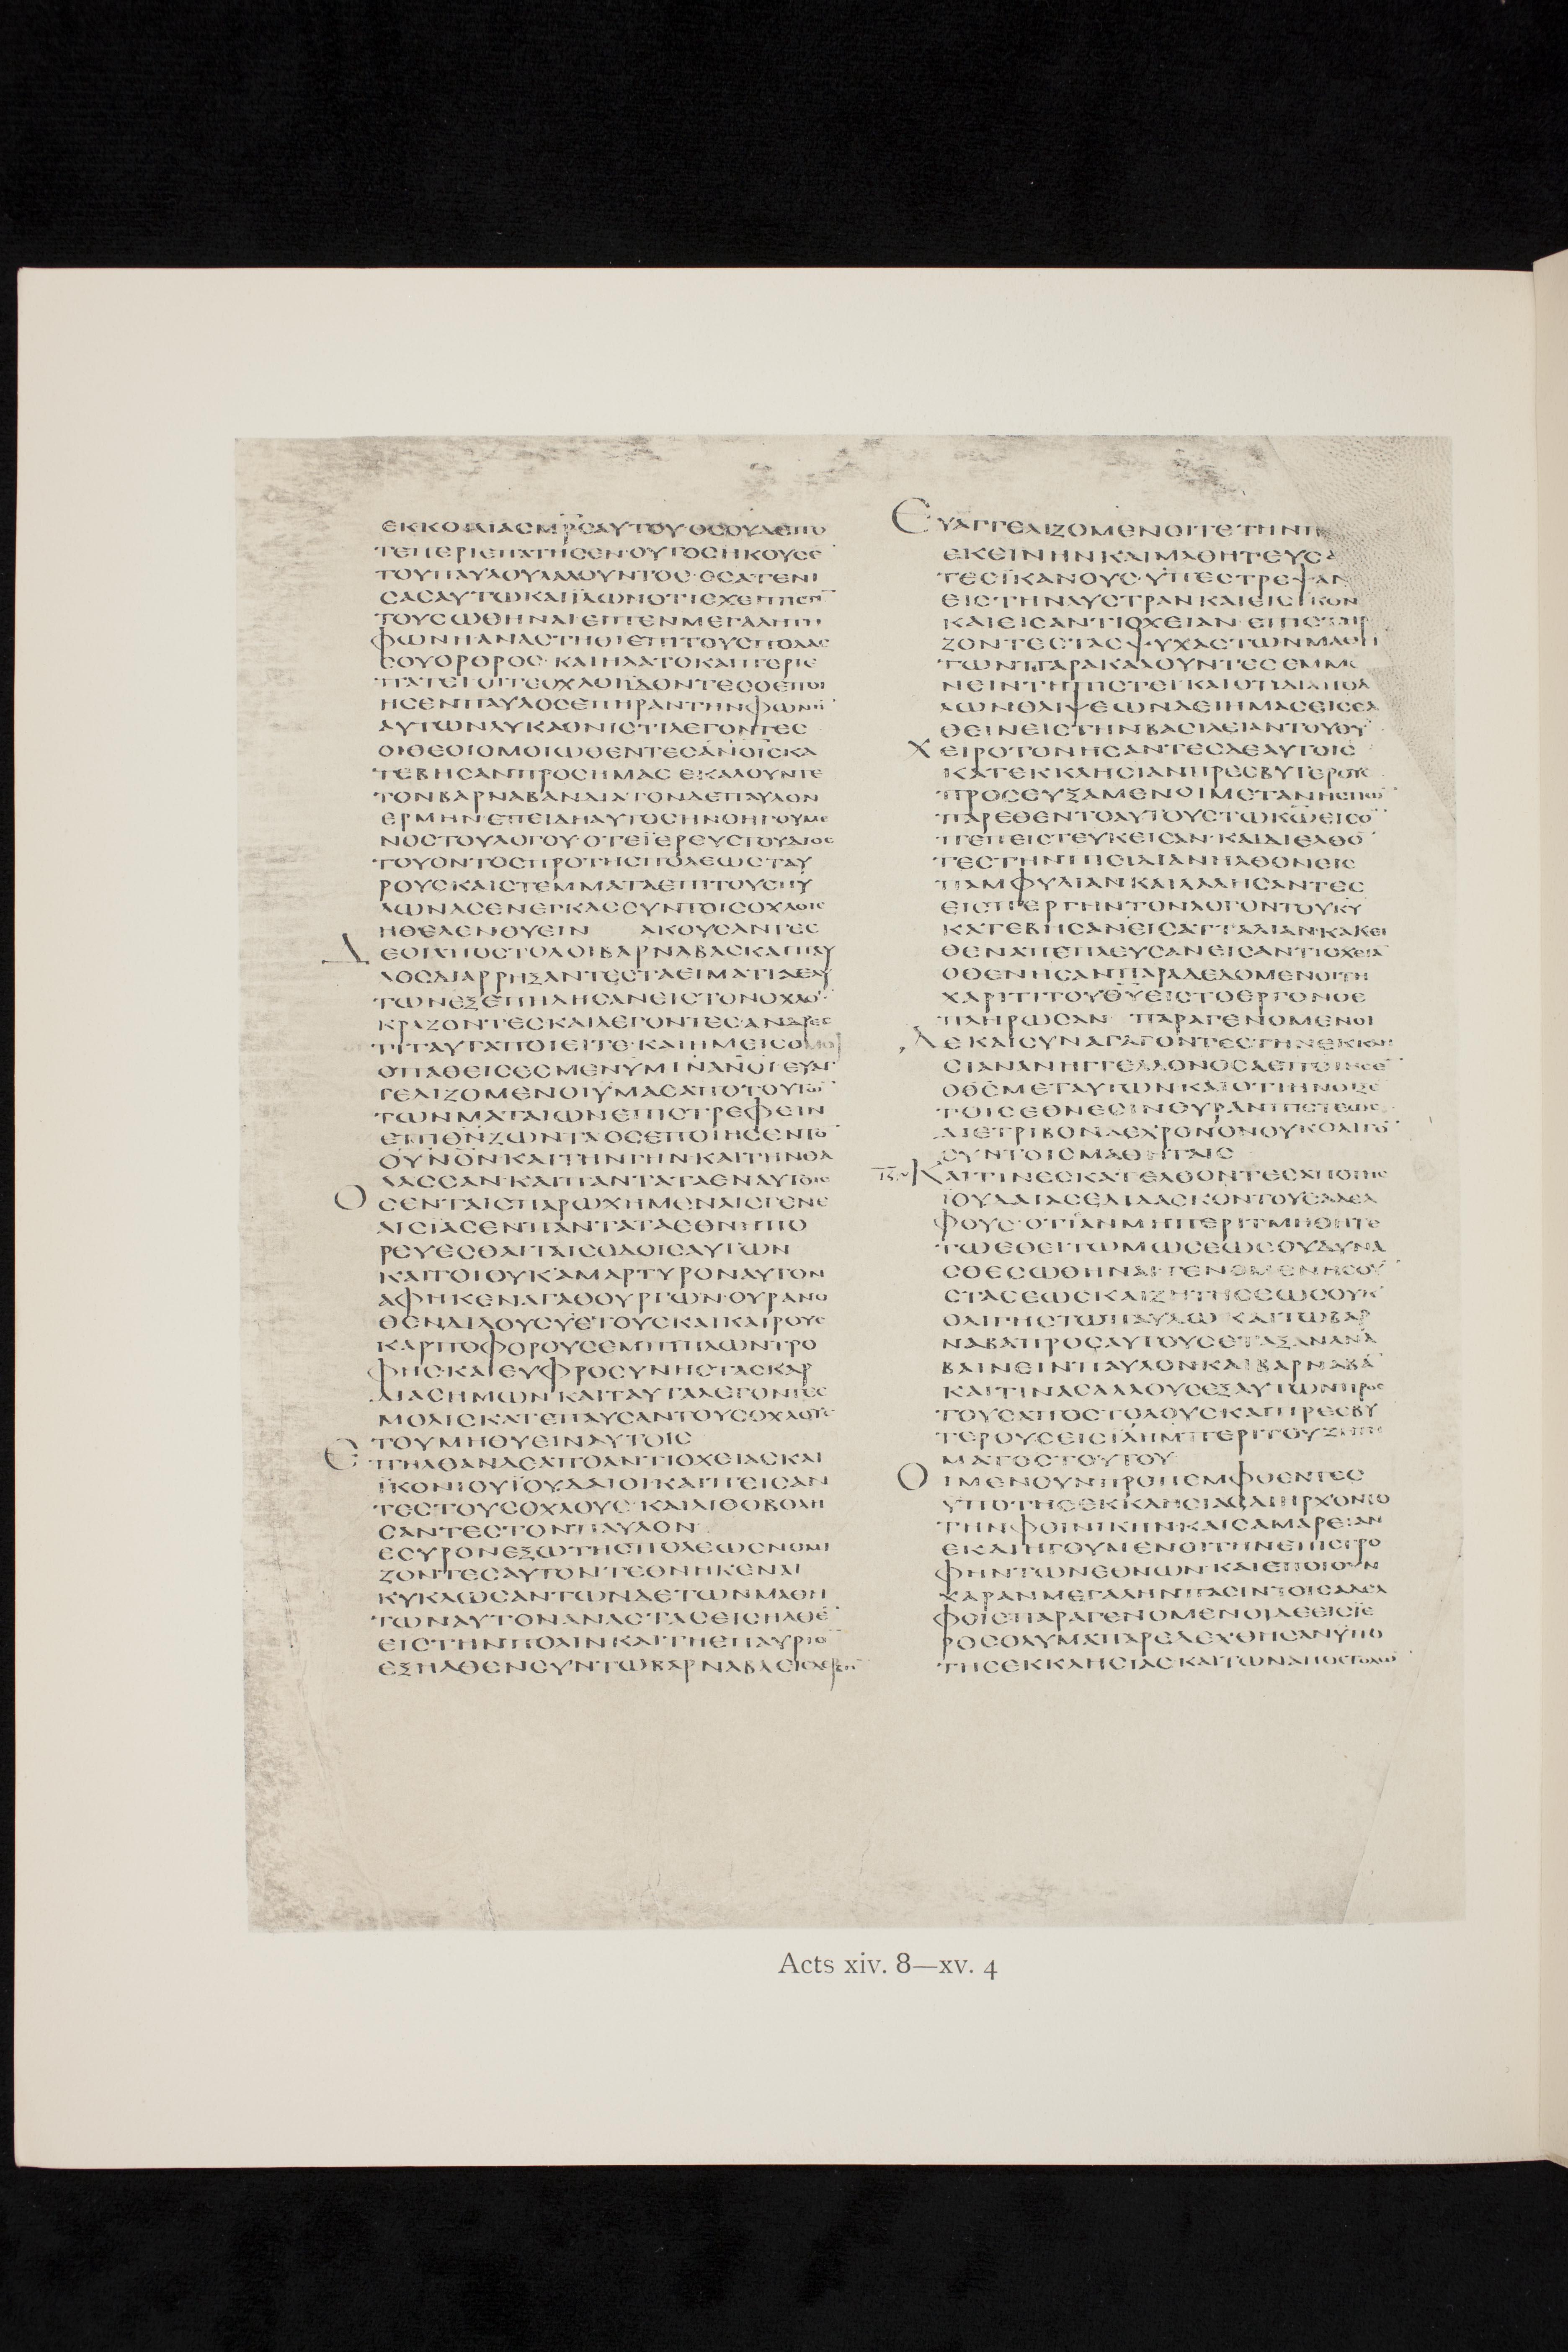 ΕΚΚΟΙΛΙΑϹΜΡ̅ϹΑΥΤΟΥ·ΟϹΟΥΔΕΠΩ
ΤΕΠΕΡΙΕΠΑΤΗϹΕΝ·ΟΥΤΟϹΗΚΟΥϹΕ
ΤΟΥΠΑΥΛΟΥΛΑΛΟΥΝΤΟϹ·ΟϹΑΤΕΝΙ
ϹΑϹΑΥΤΩΚΑΙΪΔΩΝΟΤΙΕΧΕΙΠΙϹΤΙ̅
ΤΟΥϹΩΘΗΝΑΙΕΙΠΕΝΜΕΓΑΛΗΤΗ
ΦΩΝΗΑΝΑϹΤΗΘΙΕΠΙΤΟΥϹΠΟΔΑϹ
ϹΟΥΟΡΟΡΟϹ·ΚΑΙΗΛΑΤΟΚΑΙΠΕΡΙΕ
ΠΑΤΕΙ·ΟΙΤΕΟΧΛΟΙΪΔΟΝΤΕϹΟΕΠΟΙ
ΗϹΕΝΠΑΥΛΟϹΕΠΗΡΑΝΤΗΝΦΩΝΗ̅
ΑΥΤΩΝΛΥΚΑΟΝΙϹΤΙΛΕΓΟΝΤΕϹ
ΟΙΘΕΟΙΟΜΟΙΩΘΕΝΤΕϹΑ̅Ν̅Ο̅Ι̅Ϲ̅ΚΑ
ΤΕΒΗϹΑΝΠΡΟϹΗΜΑϹ·ΕΚΑΛΟΥΝΤΕ
ΤΟΝΒΑΡΝΑΒΑΝΔΙΑ·ΤΟΝΔΕΠΑΥΛΟΝ
ΕΡΜΗΝ·ΕΠΕΙΔΗΑΥΤΟϹΗΝΟΗΓΟΥΜΕ
ΝΟϹΤΟΥΛΟΓΟΥ·ΟΤΕΪΕΡΕΥϹΤΟΥΔΙΟϹ
ΤΟΥΟΝΤΟϹΠΡΟΤΗϹΠΟΛΕΩϹΤΑΥ
ΡΟΥϹΚΑΙϹΤΕΜΜΑΤΑΕΠΙΤΟΥϹΠΥ
ΛΩΝΑϹΕΝΕΓΚΑϹϹΥΝΤΟΙϹΟΧΛΟΙϹ
ΗΘΕΛΕΝΘΥΕΙΝ ΑΚΟΥϹΑΝΤΕϹ
ΔΕΟΙΑΠΟϹΤΟΛΟΙΒΑΡΝΑΒΑϹΚΑΙΠΑΥ
ΛΟϹΔΙΑΡΡΗΞΑΝΤΕϹΤΑΕΙΜΑΤΙΑΕΑΥ
ΤΩΝΕΞΕΠΗΔΗϹΑΝΕΙϹΤΟΝΟΧΛΟ̅·
ΚΡΑΖΟΝΤΕϹΚΑΙΛΕΓΟΝΤΕϹ·ΑΝΔΡΕϹ
ΤΙΤΑΥΤΑΠΟΙΕΙΤΕ·ΚΑΙΗΜΕΙϹΟΜΟΙ
ΟΠΑΘΕΙϹΕϹΜΕΝΥΜΙΝΑ̅Ν̅Ο̅Ι̅·ΕΥΑΓ
ΓΕΛΙΖΟΜΕΝΟΙΫΜΑϹΑΠΟΤΟΥΤΩ̅
ΤΩΝΜΑΤΑΙΩΝΕΠΙϹΤΡΕΦΕΙΝ
ΕΠΙΘ̅Ν̅ΖΩΝΤΑΟϹΕΠΟΙΗϹΕΝΤΟ̅
ΟΥΝΟΝΚΑΙΤΗΝΓΗΝΚΑΙΤΗΝΘΑ
ΛΑϹϹΑΝΚΑΙΠΑΝΤΑΤΑΕΝΑΥΤΟΙϹ
ΟϹΕΝΤΑΙϹΠΑΡΩΧΗΜΕΝΑΙϹΓΕΝΕ
ΑΙϹΪΑϹΕΝΠΑΝΤΑΤΑΕΘΝΗΠΟ
ΡΕΥΕϹΘΑΙΤΑΙϹΟΔΟΙϹΑΥΤΩΝ
ΚΑΙΤΟΙΟΥΚΑΜΑΡΤΥΡΟΝΑΥΤΟΝ
ΑΦΗΚΕΝΑΓΑΘΟΥΡΓΩΝ·ΟΥΡΑΝΟ
ΘΕΝΔΙΔΟΥϹΥΕΤΟΥϹΚΑΙΚΑΙΡΟΥϹ
ΚΑΡΠΟΦΟΡΟΥϹΕΜΠΙΠΛΩΝΤΡΟ
ΦΗϹΚΑΙΕΥΦΡΟϹΥΝΗϹΤΑϹΚΑΡ
ΔΙΑϹΗΜΩΝ·ΚΑΙΤΑΥΤΑΛΕΓΟΝΤΕϹ
ΜΟΛΙϹΚΑΤΕΠΑΥϹΑΝΤΟΥϹΟΧΛΟΥϹ
ΤΟΥΜΗΘΥΕΙΝΑΥΤΟΙϹ
ΕΠΗΛΘΑΝΔΕΑΠΟΑΝΤΙΟΧΕΙΑϹΚΑΙ
ΪΚΟΝΙΟΥΪΟΥΔΑΙΟΙ·ΚΑΙΠΕΙϹΑΝ
ΤΕϹΤΟΥϹΟΧΛΟΥϹ·ΚΑΙΛΙΘΟΒΟΛΗ
ϹΑΝΤΕϹΤΟΝΠΑΥΛΟΝ·
ΕϹΥΡΟΝΕΞΩΤΗϹΠΟΛΕΩϹΝΟΜΙ
ΖΟΝΤΕϹΑΥΤΟΝΤΕΘΝΗΚΕΝΑΙ
ΚΥΚΛΩϹΑΝΤΩΝΔΕΤΩΝΜΑΘΗ
ΤΩΝΑΥΤΟΝΑΝΑϹΤΑϹΕΙϹΗΛΘΕ̅
ΕΙϹΤΗΝΠΟΛΙΝΚΑΙΤΗΕΠΑΥΡΙΟ̅
ΕΞΗΛΘΕΝϹΥΝΤΩΒΑΡΝΑΒΑΕΙϹΔΕΡΒΗ̅
ΕΥΑΓΓΕΛΙΖΟΜΕΝΟΙΤΕΤΗΝΠ
ΕΚΕΙΝΗΝΚΑΙΜΑΘΗΤΕΥϹΑ
ΤΕϹΪΚΑΝΟΥϹ·ΫΠΕϹΤΡΕΨΑΝ
ΕΙϹΤΗΝΛΥϹΤΡΑΝΚΑΙΕΙϹΙΚΟΝ
ΚΑΙΕΙϹΑΝΤΙΟΧΕΙΑΝ·ΕΠΙϹΤΗΡΙ
ΖΟΝΤΕϹΤΑϹΨΥΧΑϹΤΩΝΜΑΘΗ
ΤΩΝΠΑΡΑΚΑΛΟΥΝΤΕϹΕΜΜΕ
ΝΕΙΝΤΗΠΙϹΤΕΙΚΑΙΟΤΙΔΙΑΠΟΛ
ΛΩΝΘΛΙΨΕΩΝΔΕΙΗΜΑϹΕΙϹΕΛ
ΘΕΙΝΕΙϹΤΗΝΒΑϹΙΛΕΙΑΝΤΟΥΘ̅Υ̅
ΧΕΙΡΟΤΟΝΗϹΑΝΤΕϹΔΕΑΥΤΟΙϹ
ΚΑΤΕΚΚΛΗϹΙΑΝΠΡΕϹΒΥΤΕΡΟΥϹ
ΠΡΟϹΕΥΞΑΜΕΝΟΙΜΕΤΑΝΗϹΤΙΩ̅
ΠΑΡΕΘΕΝΤΟΑΥΤΟΥϹΤΩΚ̅Ω̅ΕΙϹΟ̅
ΠΕΠΕΙϹΤΕΥΚΕΙϹΑΝ·ΚΑΙΔΙΕΛΘΟ̅
ΤΕϹΤΗΝΠΙϹΙΔΙΑΝΗΛΘΟΝΕΙϹ
ΠΑΜΦΥΛΙΑΝΚΑΙΛΑΛΗϹΑΝΤΕϹ
ΕΙϹΠΕΡΓΗΝΤΟΝΛΟΓΟΝΤΟΥΚ̅Υ̅
ΚΑΤΕΒΗϹΑΝΕΙϹΑΤΤΑΛΙΑΝ·ΚΑΚΕΙ
ΘΕΝΑΠΕΠΛΕΥϹΑΝΕΙϹΑΝΤΙΟΧΕΙΑ̅
ΟΘΕΝΗϹΑΝΠΑΡΑΔΕΔΟΜΕΝΟΙΤΗ
ΧΑΡΙΤΙΤΟΥΘ̅Υ̅ΕΙϹΤΟΕΡΓΟΝΟΕ
ΠΛΗΡΩϹΑΝ ΠΑΡΑΓΕΝΟΜΕΝΟΙ
ΔΕΚΑΙϹΥΝΑΓΑΓΟΝΤΕϹΤΗΝΕΚΚΛΗ
ϹΙΑΝΑΝΗΓΓΕΛΛΟΝΟϹΑΕΠΟΙΗϹΕ̅
ΟΘ̅Ϲ̅ΜΕΤΑΥΤΩΝΚΑΙΟΤΙΗΝΟΙΞΕ̅
ΤΟΙϹΕΘΝΕϹΙΝΘΥΡΑΝΠΙϹΤΕΩϹ
ΔΙΕΤΡΙΒΟΝΔΕΧΡΟΝΟΝΟΥΚΟΛΙΓΟ̅
ϹΥΝΤΟΙϹΜΑΘΗΤΑΙϹ
ΚΑΙΤΙΝΕϹΚΑΤΕΛΘΟΝΤΕϹΑΠΟΤΗϹ
ΪΟΥΔΑΙΑϹΕΔΙΔΑϹΚΟΝΤΟΥϹΑΔΕΛ
ΦΟΥϹ·ΟΤΙΑΝΜΗΠΕΡΙΤΜΗΘΗΤΕ
ΤΩΕΘΕΙΤΩΜΩϹΕΩϹΟΥΔΥΝΑ
ϹΘΕϹΩΘΗΝΑΙ·ΓΕΝΟΜΕΝΗϹΟΥ̅
ϹΤΑϹΕΩϹΚΑΙΖΗΤΗϹΕΩϹΟΥΚ
ΟΛΙΓΗϹΤΩΠΑΥΛΩ·ΚΑΙΤΩΒΑΡ
ΝΑΒΑΠΡΟϹΑΥΤΟΥϹΕΤΑΞΑΝΑΝΑ
ΒΑΙΝΕΙΝΠΑΥΛΟΝΚΑΙΒΑΡΝΑΒΑ̅
ΚΑΙΤΙΝΑϹΑΛΛΟΥϹΕΞΑΥΤΩΝΠΡΟϹ
ΤΟΥϹΑΠΟϹΤΟΛΟΥϹΚΑΙΠΡΕϹΒΥ
ΤΕΡΟΥϹΕΙϹΪ̅Λ̅Η̅Μ̅ΠΕΡΙΤΟΥΖΗΤΗ
ΜΑΤΟϹΤΟΥΤΟΥ
ΟΙΜΕΝΟΥΝΠΡΟΠΕΜΦΘΕΝΤΕϹ
ΫΠΟΤΗϹΕΚΚΛΗϹΙΑϹΔΙΗΡΧΟΝΤΟ
ΤΗΝΦΟΙΝΙΚΗΝΚΑΙϹΑΜΑΡΕΙΑΝ
ΕΚΔΙΗΓΟΥΜΕΝΟΙΤΗΝΕΠΙϹΤΡΟ
ΦΗΝΤΩΝΕΘΝΩΝΚΑΙΕΠΟΙΟΥΝ
ΧΑΡΑΝΜΕΓΑΛΗΝΠΑϹΙΝΤΟΙϹΑΔΕΛ
ΦΟΙϹΠΑΡΑΓΕΝΟΜΕΝΟΙΔΕΕΙϹΪΕ
ΡΟϹΟΛΥΜΑΠΑΡΕΔΕΧΘΗϹΑΝΫΠΟ
ΤΗϹΕΚΚΛΗϹΙΑϹΚΑΙΤΩΝΑΠΟϹΤΟΛΩ̅
Acts xiv. 8—xv. 4